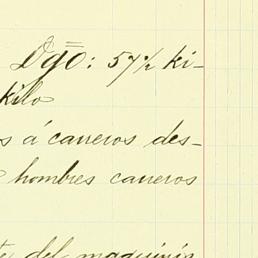 Dgo: 57½ ki-
kilo
s á carreros des-
hombres carreros
del maquinis